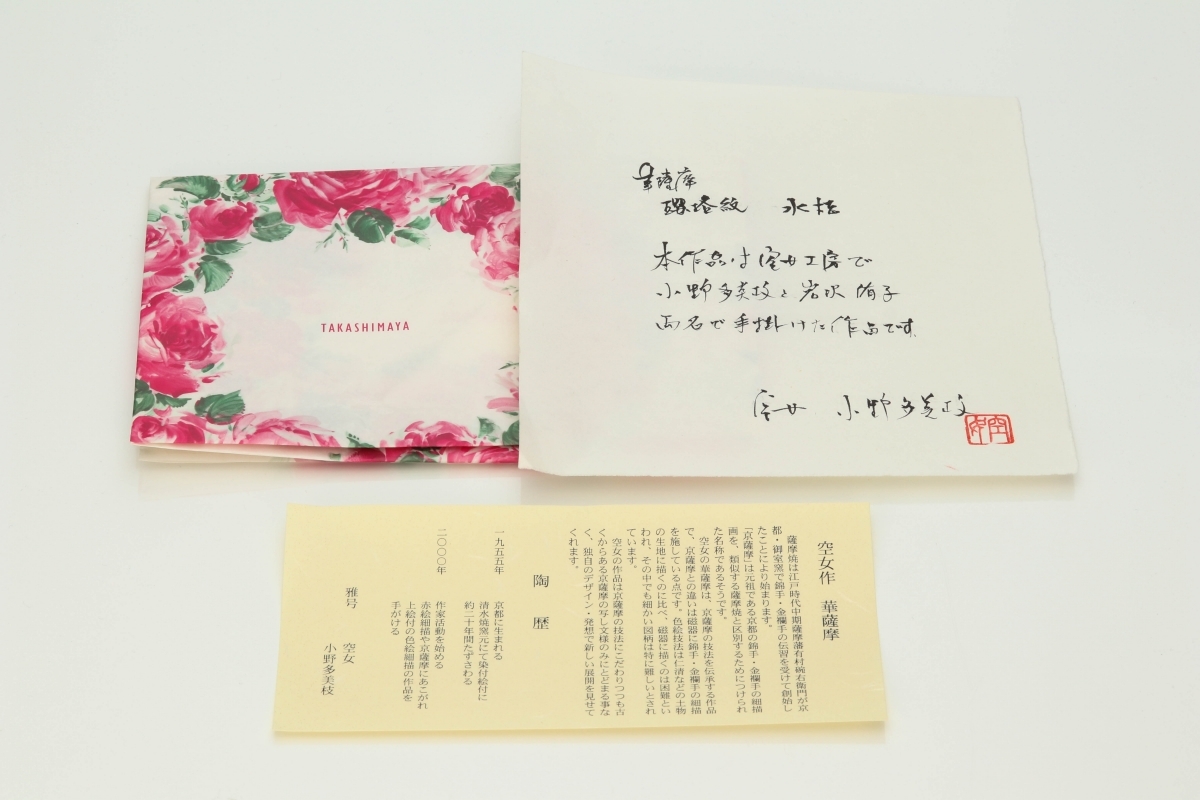 TAKASHIMAYA
華薩摩
瓔珞紋 水指
本作品は空女工房で
小野多美枝と岩沢侑子
両名で手掛けた作品です。
空女 小野多美枝
空女
空女作 華薩摩
薩摩焼は江戸時代中期薩摩藩有村碗右衛門が京
都・御室窯で錦手・金襴手の伝習を受けて創始し
たことにより始まります。
「京薩摩」は元祖である京都の錦手・金襴手の細描
画を、類似する薩摩焼と区別するためにつけられ
た名称であるそうです。
空女の華薩摩は、京薩摩の技法を伝承する作品
で、京薩摩との違いは磁器に錦手・金襴手の細描
を施している点です。色絵技法は仁清などの土物
の生地に描くのに比べ、磁器に描くのは困難とい
われ、その中でも細かい図柄は特に難しいとされ
ています。
空女の作品は京薩摩の技法にこだわりつつも古
くからある京薩摩の写し文様のみにとどまる事な
く、独自のデザイン・発想で新しい展開を見せて
くれます。
陶歴
一九五五年 京都に生まれる
清水焼窯元にて染付絵付に
約二十年間たずさわる
二〇〇〇年 作家活動を始める
赤絵細描や京薩摩にあこがれ
上絵付の色絵細描の作品を
手がける
雅号 空女
小野多美枝